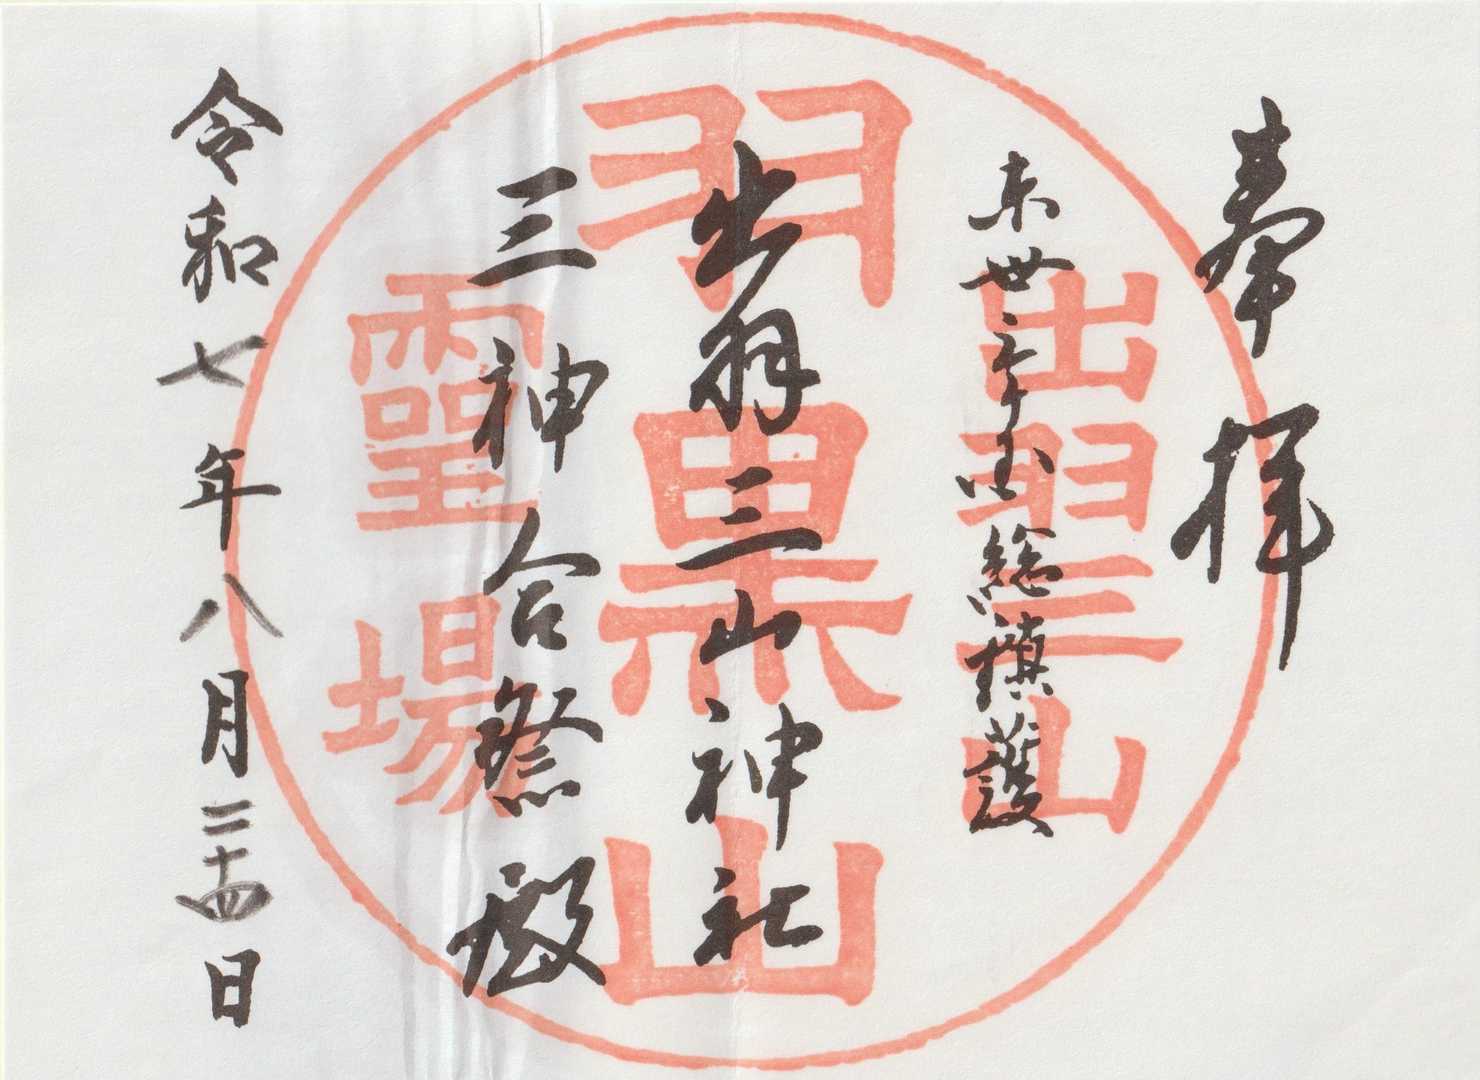 奉拝
東丗三ヶ国総鎮護
出羽三山神社
三神合祭殿
令和七年八月二十四日
出羽三山
羽黒山
靈場